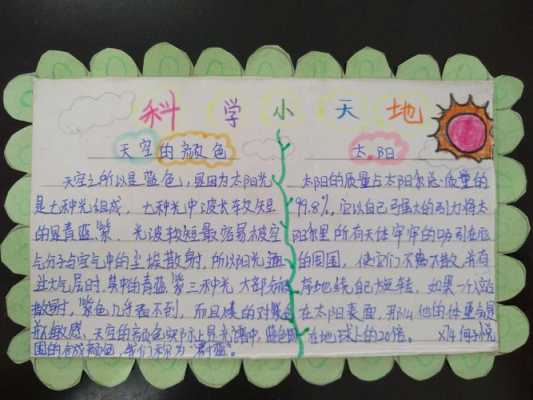 科学小天地
天空的颜色
天空之所以是蓝色，是因为太阳光
是七种光组成，七种光中波长较短
的是青蓝紫，光波较短最容易被空
气分子与空气中的尘埃散射，所以阳光通
过大气层时，其中的青蓝紫三种光大部分被
散射，紫色几乎看不到，而且人的对紫色
敏感，天空的颜色实际上是光谱中蓝色
围的合成颜色，我们称为"青蓝"。
太阳
太阳的质量占太阳系总质量的
99.8%，它以自己强大的引力将太
阳系里所有天体牢牢的吸引在它
的周围，使它们不离不散，井有
序地绕自己旋转，如果一个人站
在太阳表面，那么他的体重是
在地球上的20倍。